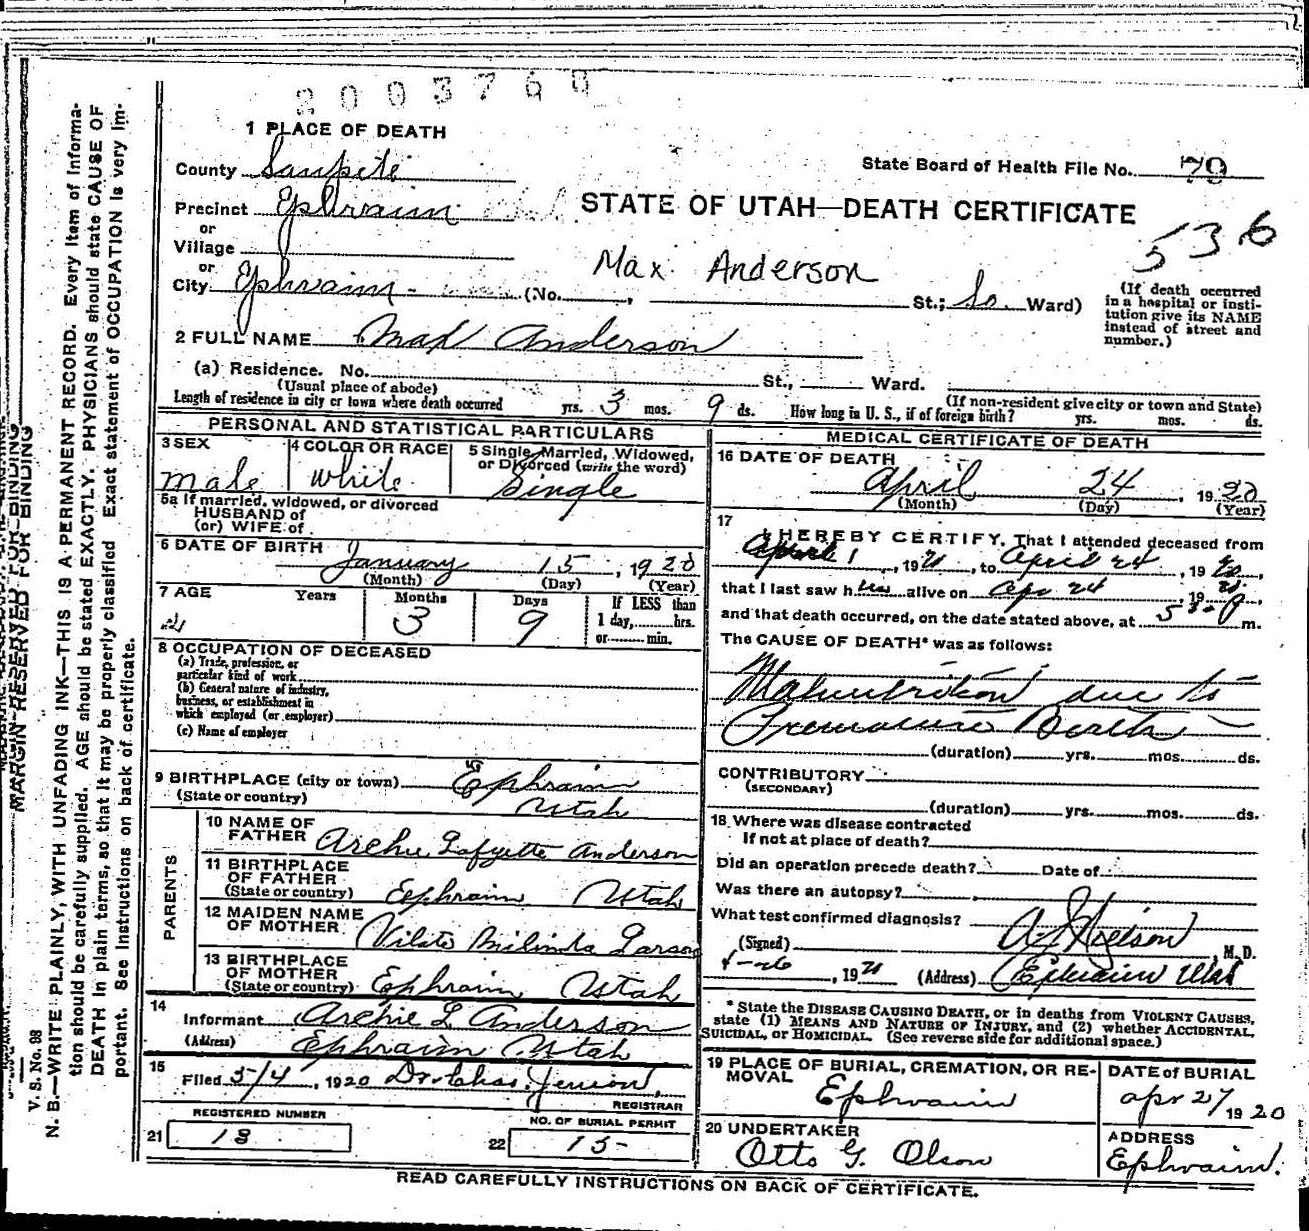 2003760
1 PLACE OF DEATH
County Sanpete
State Board of Health File No. 79
Precinct Ephraim
STATE OF UTAH—DEATH CERTIFICATE
536
or
Village
or
Max Anderson
City Ephraim (No. , St.; So. Ward)
(If death occurred in a hospital or institution give its NAME instead of street and number.)
2 FULL NAME Max Anderson
(a) Residence. No. St., Ward.
(Usual place of abode) (If non-resident give city or town and State)
Length of residence in city or town where death occurred yrs. 3 mos. 9 ds. How long in U. S., if of foreign birth? yrs. mos. ds.
PERSONAL AND STATISTICAL PARTICULARS
3 SEX 4 COLOR OR RACE 5 Single, Married, Widowed, or Divorced (write the word)
male white Single
5a If married, widowed, or divorced
HUSBAND of
(or) WIFE of
6 DATE OF BIRTH January 15, 1920
(Month) (Day) (Year)
7 AGE Years Months Days If LESS than
3 9 1 day, hrs.
or min.
8 OCCUPATION OF DECEASED
(a) Trade, profession, or
particular kind of work
(b) General nature of industry,
business, or establishment in
which employed (or employer)
(c) Name of employer
9 BIRTHPLACE (city or town) Ephraim
(State or country) Utah
PARENTS
10 NAME OF
FATHER Archie Lafyette Anderson
11 BIRTHPLACE
OF FATHER
(State or country) Ephraim Utah
12 MAIDEN NAME
OF MOTHER Vilate Milinda Larson
13 BIRTHPLACE
OF MOTHER
(State or country) Ephraim Utah
14
Informant Archie L Anderson
(Address) Ephraim Utah
15
Filed 5/4, 1920 Dr. Chas. Jenson,
REGISTRAR
REGISTERED NUMBER
NO. OF BURIAL PERMIT
21 18 22 15
MEDICAL CERTIFICATE OF DEATH
16 DATE OF DEATH
April 24, 1920
(Month) (Day) (Year)
17
I HEREBY CERTIFY, That I attended deceased from
April 1, 1920, to April 24, 1920,
that I last saw him alive on Apr 24, 1920,
and that death occurred, on the date stated above, at m.
The CAUSE OF DEATH* was as follows:
Malnutrition due to
Premature Birth
(duration) yrs. mos. ds.
CONTRIBUTORY
(SECONDARY)
(duration) yrs. mos. ds.
18 Where was disease contracted
If not at place of death?
Did an operation precede death? Date of
Was there an autopsy?
What test confirmed diagnosis?
(Signed) A J Nielson M. D.
4-26, 1920 (Address) Ephraim Utah
* State the DISEASE CAUSING DEATH, or in deaths from VIOLENT CAUSES,
state (1) MEANS AND NATURE OF INJURY, and (2) whether ACCIDENTAL,
SUICIDAL, or HOMICIDAL. (See reverse side for additional space.)
19 PLACE OF BURIAL, CREMATION, OR RE-
MOVAL Ephraim
DATE of BURIAL
Apr 27 1920
20 UNDERTAKER
Otto G. Olson
ADDRESS
Ephraim.
READ CAREFULLY INSTRUCTIONS ON BACK OF CERTIFICATE.
MARGIN RESERVED FOR BINDING
V. S. No. 98
N. B.—WRITE PLAINLY, WITH UNFADING INK—THIS IS A PERMANENT RECORD. Every item of informa-
tion should be carefully supplied. AGE should be stated EXACTLY. PHYSICIANS should state CAUSE OF
DEATH in plain terms, so that it may be properly classified. Exact statement of OCCUPATION is very im-
portant. See instructions on back of certificate.